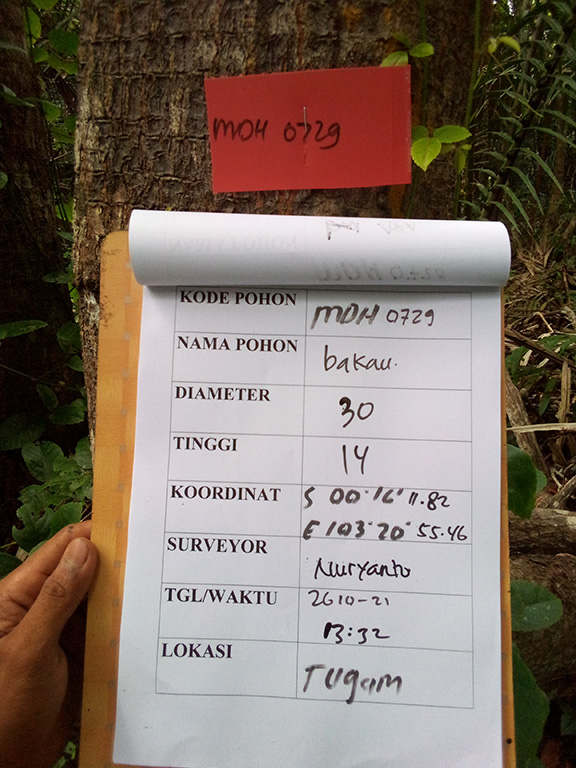 MDH 0729
KODE POHON MDH 0729
NAMA POHON bakau.
DIAMETER 30
TINGGI 14
KOORDINAT S 00° 16' 11.82
E 103° 20' 55.46
SURVEYOR Nuryanto
TGL/WAKTU 2610-21
13:32
LOKASI Tugam